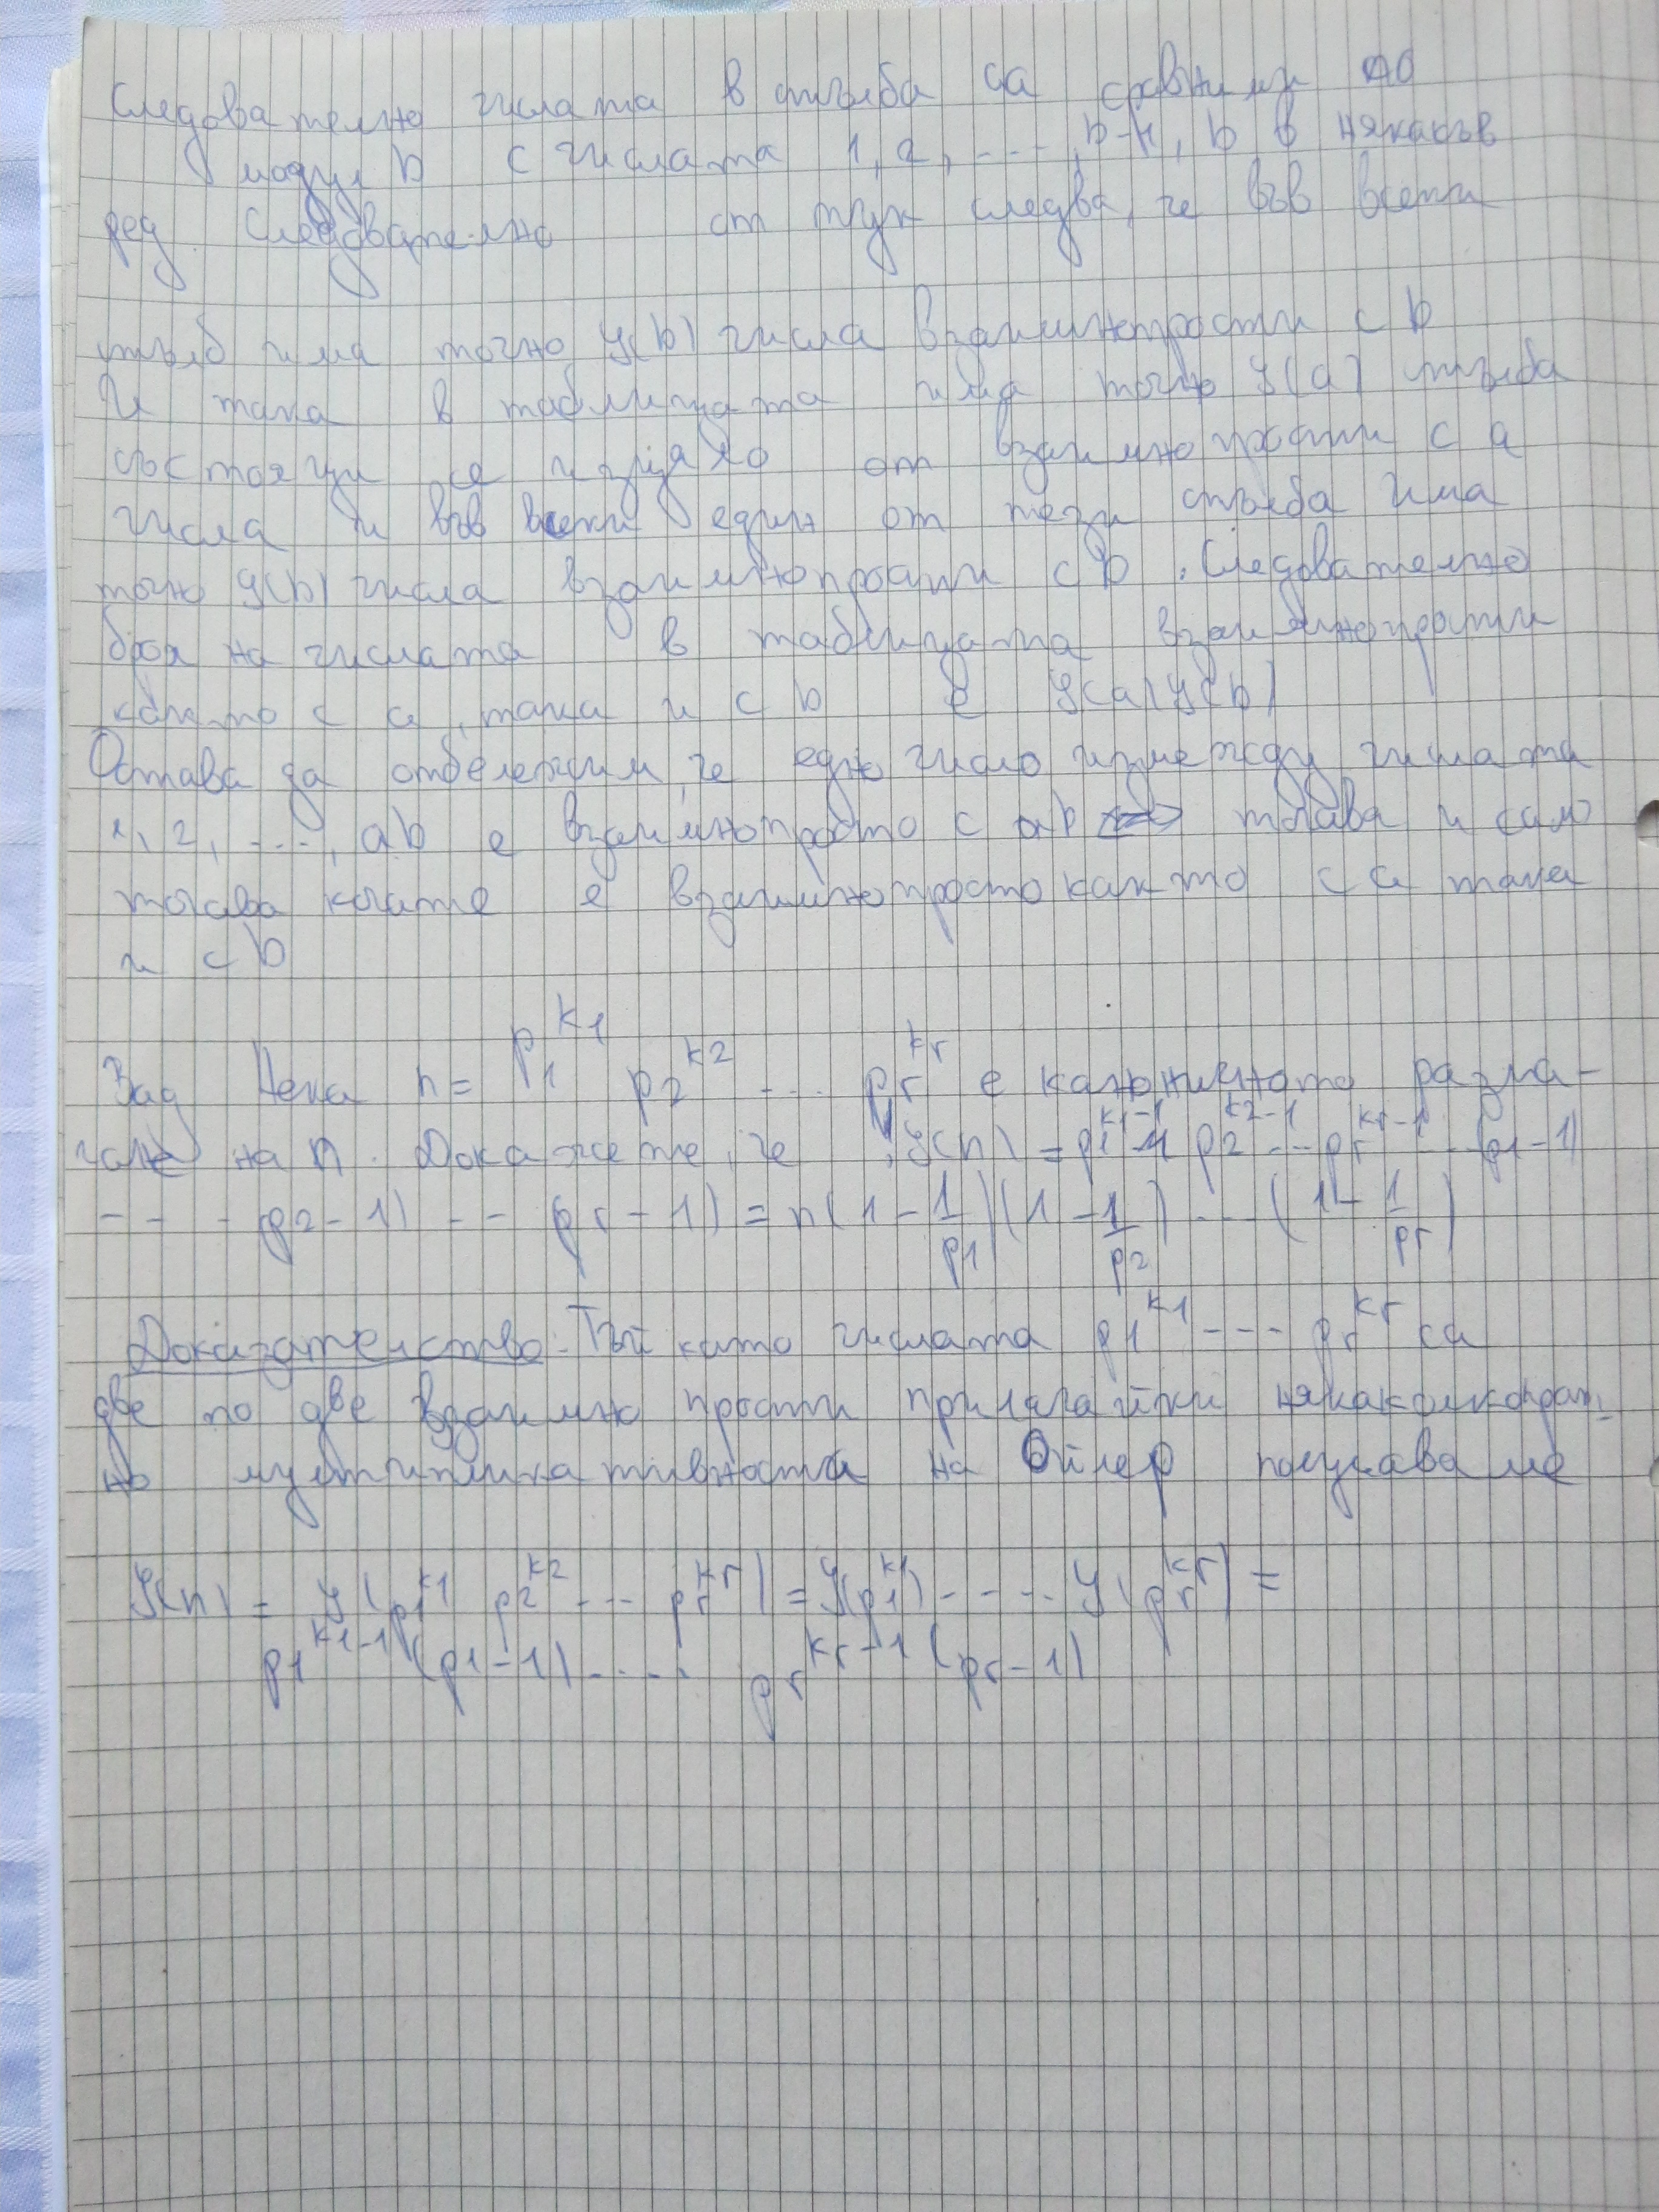 Следователно числата в стълба са сравними по
модул b с числата 1, 2, ---, b-1, b в някакъв
ред. Следователно от тук следва, че във всеки
стълб има точно φ(b) числа взаимнопрости с b
И така в таблицата има точно φ(a) стълба
състоящи се изцяло от взаимнопрости с a
числа и във всеки един от тези стълба има
точно φ(b) числа взаимнопрости с b. Следователно
броя на числата в таблицата взаимнопрости
както с a, така и с b е φ(a)φ(b)
Остава да отбележим, че едно число измежду числата
1, 2, ---, ab е взаимнопросто с ab тогава и само
тогава когато е взаимнопросто както с a така
и с b
Зад Нека n = p1^k1 p2^k2 --- pr^kr е каноничното разла-
гане на n. Докажете, че φ(n) = p1^k1-1 p2^k2-1 --- pr^kr-1 --- (p1-1)
--- (p2-1) -- (pr-1) = n(1 - 1/p1)(1 - 1/p2) --- (1 - 1/pr)
Доказателство. Тъй като числата p1^k1 --- pr^kr са
две по две взаимно прости прилагайки някаколкократ-
но мултипликативността на Ойлер получаваме
φ(n) = φ(p1^k1 p2^k2 --- pr^kr) = φ(p1^k1) ---- φ(pr^kr) =
p1^k1-1 (p1-1) ---- pr^kr-1 (pr-1)